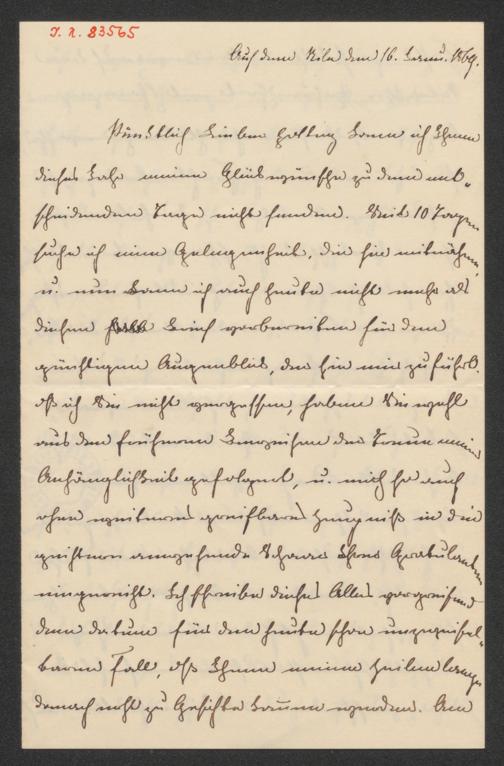 I. N. 83565
Auf dem Nile den 16. Janu. 1869.
Pünktlich lieber kann ich Ihnen
dieses Jahr meine Glückwünsche zu dem ent-
scheidenden Tage nicht senden. Seit 10 Tagen
suche ich eine Gelegenheit, die sie mitnähme,
u. nun kann ich auch heute nicht mehr als
diesen Brief vorbereiten für den
günstigen Augenblick, der sie mir zuführt.
Daß ich Sie nicht vergessen, haben Sie wohl
aus den früheren Beweisen der Treue meiner
Anhänglichkeit gefolgert, u. mich so auch
ohne weiteres greifbares Zeugniß in die
geistern Schaar Ihres Gratulanten
eingereiht. Ich schreibe dieses Alles vorgreifend
dem datum für den heute schon unzweifel-
baren Fall, daß Ihnen meine Zeilen lange
danach erst zu Gesichte kommen werden. Am